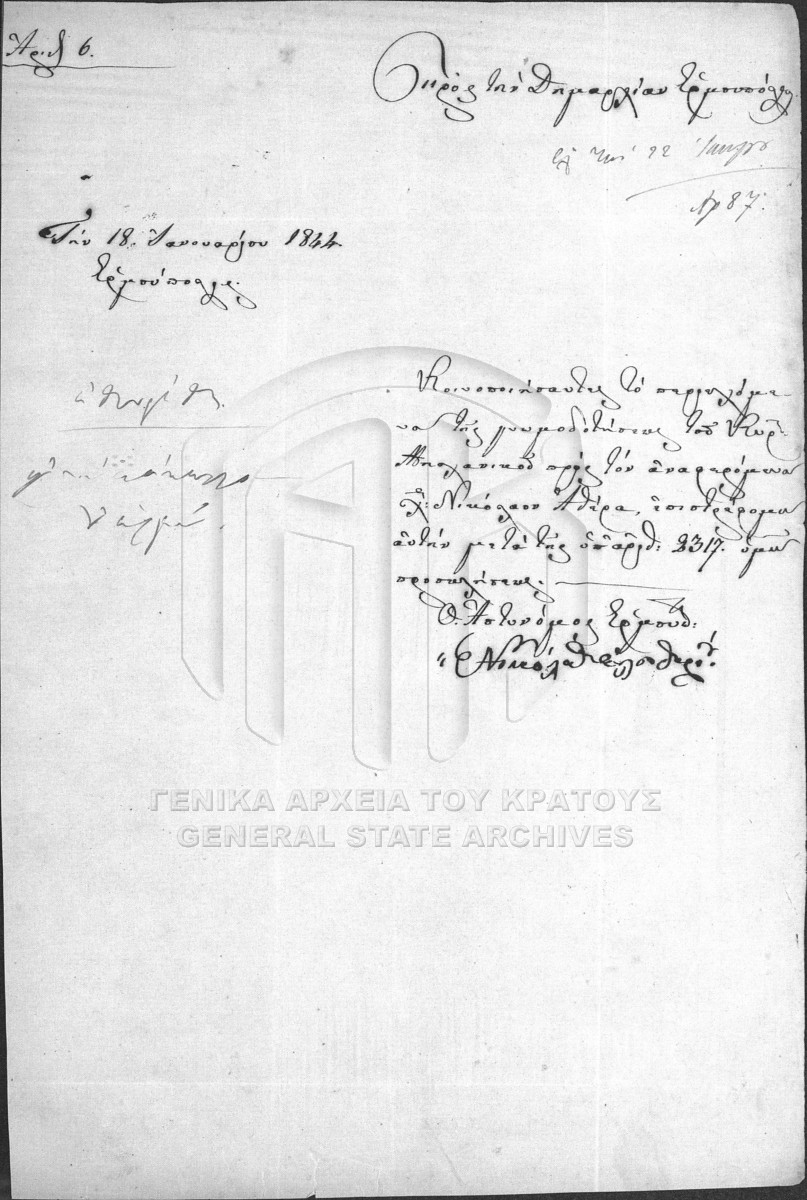 Ἀριθ 6.
Πρὸς τὴν Δημαρχίαν Ἑρμουπόλεως
τὴν 22
Ἀρ 87.
Τὴν 18. Ἰανουαρίου 1844.
Ἑρμούπολις.
ἐθεωρήθη.
Κοινοποιήσαντες τὸ περιεχόμε-
νον τῆς γνωμοδοτήσεως τοῦ Κυρ:
Μηχανικοῦ πρὸς τὸν ἀναφερόμενον
Κ: Νικόλαον, ἐπιστρέφομεν
αὐτὴν μετὰ τῆς ὑπ ἀριθ: 2317. ὑμῶν
προσκλήσεως.
Ὁ Ἀστυνόμος Ἑρμουπ:
ΓΕΝΙΚΑ ΑΡΧΕΙΑ ΤΟΥ ΚΡΑΤΟΥΣ
GENERAL STATE ARCHIVES